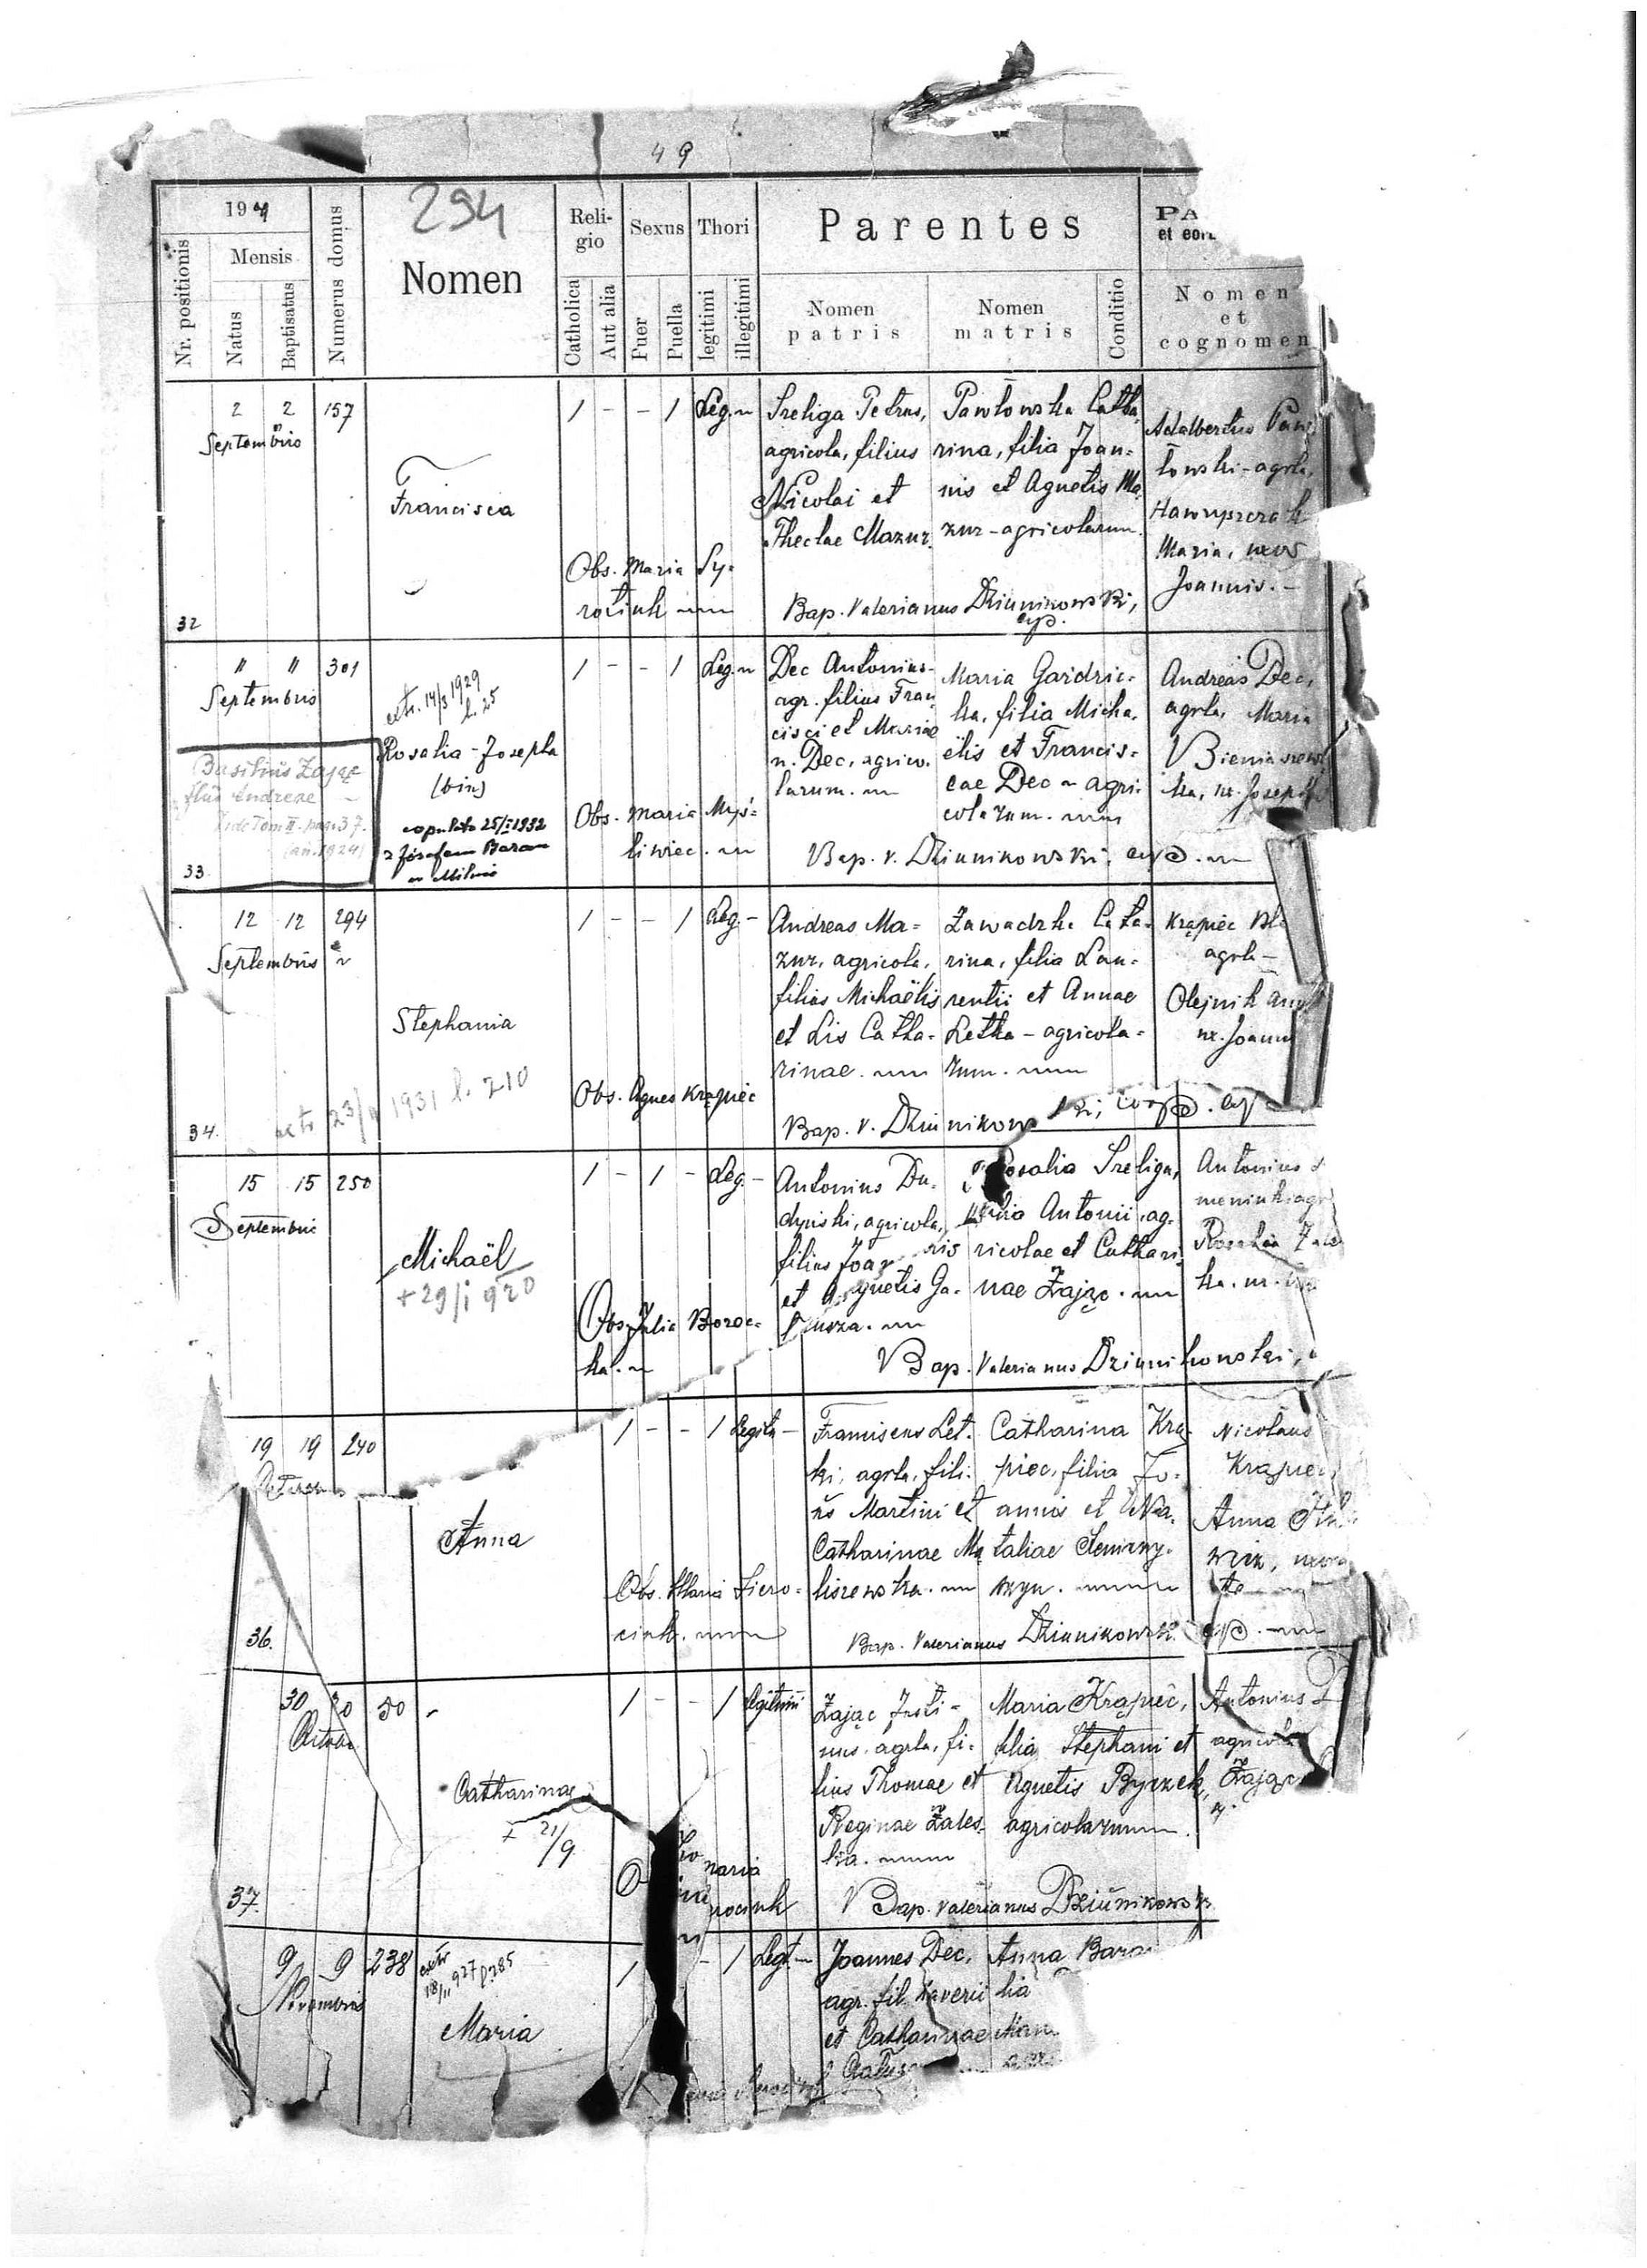 49
294
Nr. positionis
19
Mensis
Natus
Baptisatus
Numerus domus
Nomen
Religio
Catholica
Aut alia
Sexus
Puer
Puella
Thori
legitimi
illegitimi
Parentes
Nomen
patris
Nomen
matris
Conditio
Nomen
et
cognomen
2 2 157
Septembris
Francisca
32
1 - - 1 Leg.
Sreliga Petrus,
agricola, filius
Nicolai et
Theclae Mazur.
Pawłowska Catha
rina, filia Joan-
nis et Agnetis Ma
zur - agricolarum.
Adalbertus Paw
łowski - agrla,
Hawryszczak
Maria, uxor
Joannis. -
Obs. Maria Sy-
rotiuk
Bap. Valerianus Dziunikowski,
" " 301
Septembris
extr. 14/3 1929
l. 25
Rosalia - Josepha
(bin)
copulata 25/I 1932
z Józefem Baran
w Milnie
Basilius Zając
filius Andreae
Vide Tom II. pag. 37.
(an. 1924)
33
1 - - 1 Leg.
Dec Antonius
agr. filius Fran
cisci et Mariae
n. Dec, agrico.
larum.
Maria Gaidzic-
ka, filia Micha.
ëlis et Francis-
cae Dec - agri-
colarum.
Andreas Dec,
agrla, Maria
Bieniaszews
ka, ux. Joseph
Obs. Maria Myś-
liwiec.
Bap. V. Dziunikowski,
12 12 294
Septembris
Stephania
extr 23/ 1931 l. 210
34.
1 - - 1 Leg. -
Andreas Ma-
zur, agricola,
filius Michaëlis
et Lis Catha-
rinae.
Zawadzka Cata-
rina, filia Lau-
rentii et Annae
Letka - agricola-
rum.
Krąpiec
agrla -
Olejnik
ux. Joann
Obs. Agnes Krąpiec
Bap. V. Dziunikowski,
15 15 250
Septembris
Michaël
+ 29/I 920
1 - 1 - Leg. -
Antonius Du-
dyński, agricola,
filius Joannis
et Agnetis Ga-
Rosalia Sreliga,
filia Antonii, ag-
ricolae et Cathari
nae Zając.
Antonius
Obs. Julia Boroc-
ka.
Bap. Valerianus Dziunikowski,
19 19 240
Anna
36.
1 - - 1 Legitm -
Franciscus Let.
ki, agrla, fili-
us Martini et
Catharinae Ma
liszewska.
Catharina Krą-
piec, filia Jo-
annis et Na-
taliae
Nicolaus
Krąpiec,
Anna
Obs. Maria Siero-
ciuk.
Bap. Valerianus Dziunikowski.
30 30 50
Catharina
+ 21/9
37.
1 - - 1 legitimi
Zając Justi-
nus, agrla, fi-
lius Thomae et
Reginae Zales-
ka.
Maria Krąpiec,
filia Stephani et
Agnetis Byczek,
agricolarum.
Antonius
agricola
Zając
Maria
Bap. Valerianus Dziunikowsk
9 9 238
Novembris
extr
18/II 927 l. 285
Maria
1 - 1 Legt. -
Joannes Dec,
agr. fil. Xaverii
et Catharinae
Anna Bara
lia